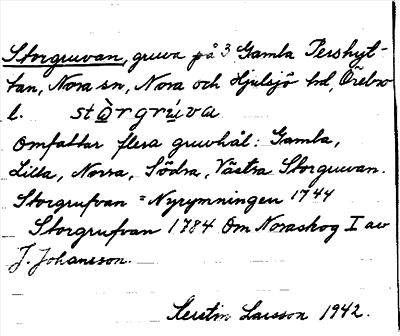 Storgruvan, gruva på 3 Gamla Pershyt-
tan, Nora sn, Nora och Hjulsjö hd, Örebro
l. stὰrgrúva
Omfattar flera gruvhål: Gamla,
Lilla, Norra, Södra, Västra Storgruvan.
Storgrufvan = Nyrymningen 1744
Storgrufvan 1784 Om Noraskog I av
J. Johansson.
Kerstin Larsson 1942.